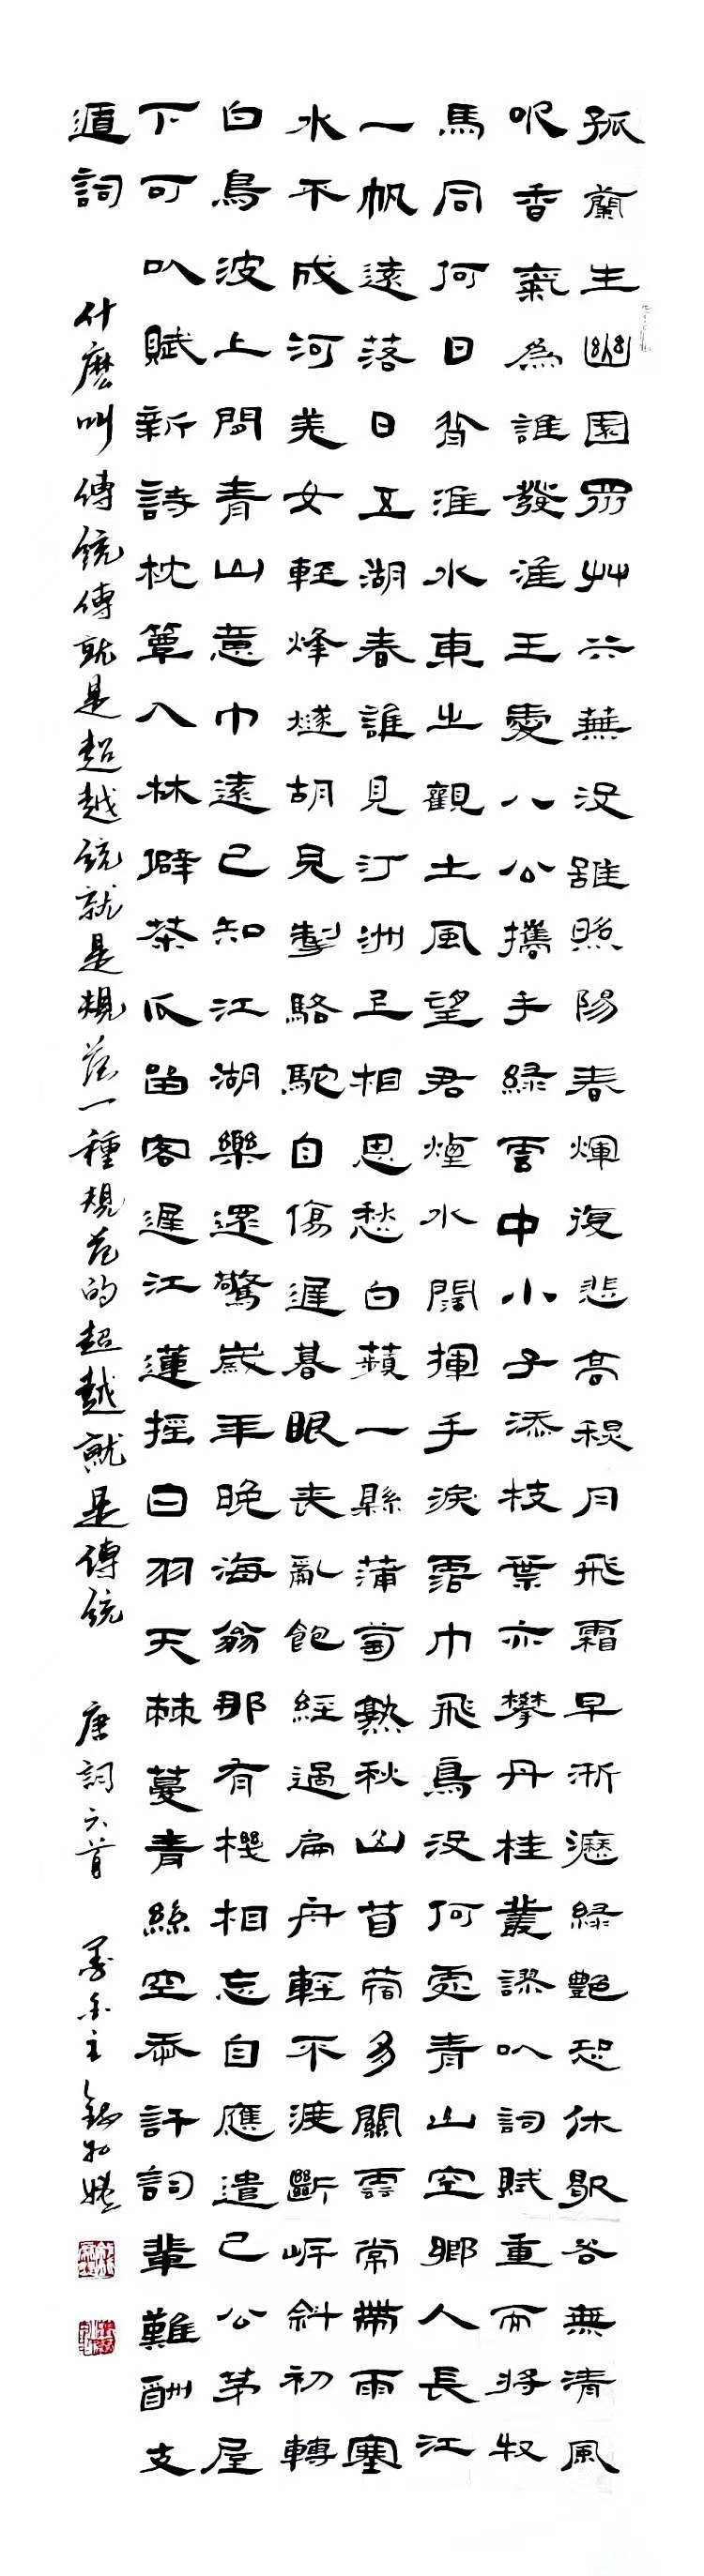 孤蘭生幽園眾艸共蕪沒雖照陽春輝復悲高秋月飛霜早淅瀝綠艷恐休歇若無清風
吹香氣為誰發淮王愛八公攜手綠雲中小子添枝葉亦攀丹桂叢謬以詞賦重而將枚
馬同何日背淮水東之觀土風望君煙水闊揮手淚霑巾飛鳥沒何處青山空鄉人長江
一帆遠落日五湖春誰見汀洲上相思愁白蘋一縣蒲萄熟秋山苜蓿多關雲常帶雨塞
水不成河羌女輕烽燧胡兒掣駱駝自傷遲暮眼喪亂飽經過扁舟輕不渡斷岸斜初轉
白鳥波上閒青山意中遠已知江湖樂還驚歲年晚海翁那有機相忘自應遣已公茅屋
下可以賦新詩枕簟入林僻茶瓜留客遲江蓮搖白羽天棘蔓青絲空忝許詞輩難酬支
遁詞 什麽叫傳統傳就是超越統就是規范一種規范的超越就是傳統 唐詞六首